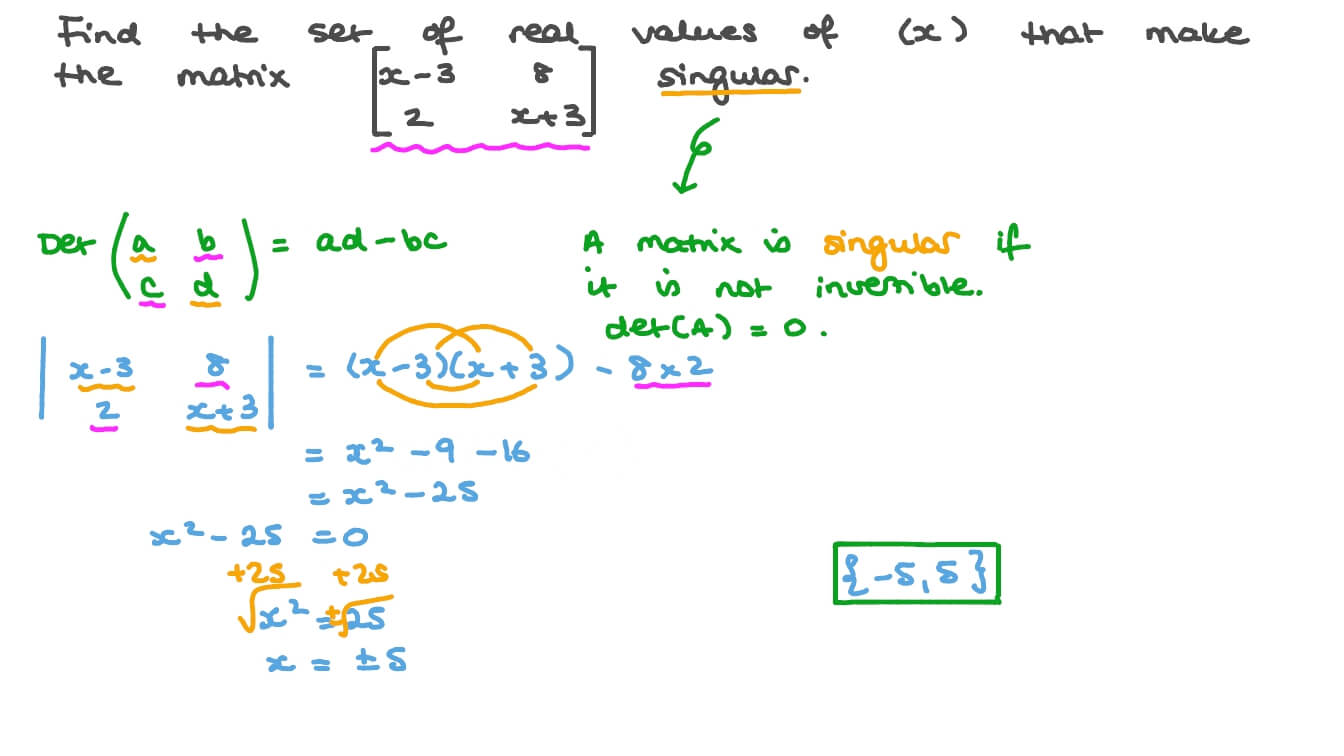 Find the set of real values of (x) that make
the matrix [x-3 8 singular.
2 x+3]
Det (a b) = ad-bc
c d
A matrix is singular if
it is not invertible.
det(A) = 0.
|x-3 8| = (x-3)(x+3) - 8x2
2 x+3
= x² -9 -16
= x² - 25
x² - 25 = 0
+25 +25
√x² = ±√25
x = ±5
{-5, 5}